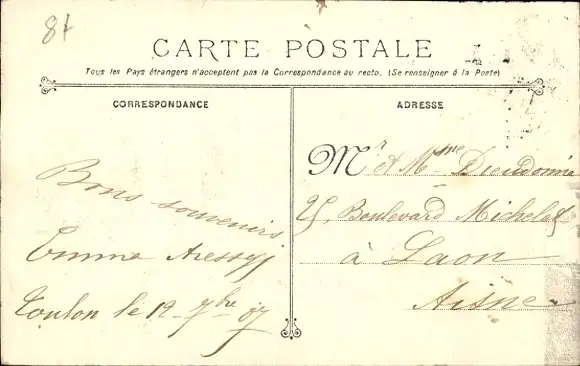 8f
CARTE POSTALE
Tous les Pays étrangers n'acceptent pas la Correspondance au recto. (Se renseigner à la Poste)
CORRESPONDANCE
Bons souvenirs
Emma
Toulon le 12 7bre 07
ADRESSE
Mr et Mme Dieudonné
25, Boulevard Michelet
à Laon
Aisne